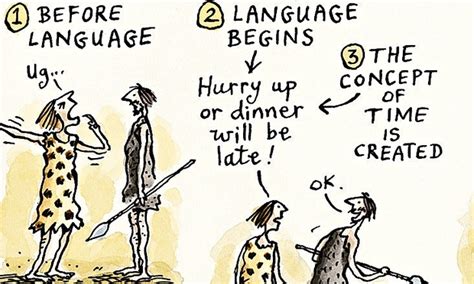 1 BEFORE
LANGUAGE
Ug...
2 LANGUAGE
BEGINS
Hurry up
or dinner
will be
late!
3 THE
CONCEPT
OF
TIME
IS
CREATED
OK.